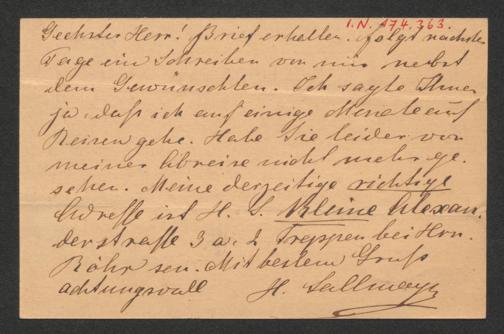 I.N. 174.363.
Geehrter Herr! Brief erhalten. folgt nächster
Tage ein Schreiben von mir nebst
dem Gewünschten. Ich sagte Ihnen
ja, daſs ich auf einige Monate auf
Reisen gehe. Habe Sie leider vor
meiner Abreise nicht mehr ge-
sehen. Meine derzeitige richtige
Adresse ist H. S. Kleine Alexan-
derstraſse 3 a. 2 Treppen bei Hrn.
Röhr sen. Mit bestem Gruſs
achtungsvoll H. Sallmayer